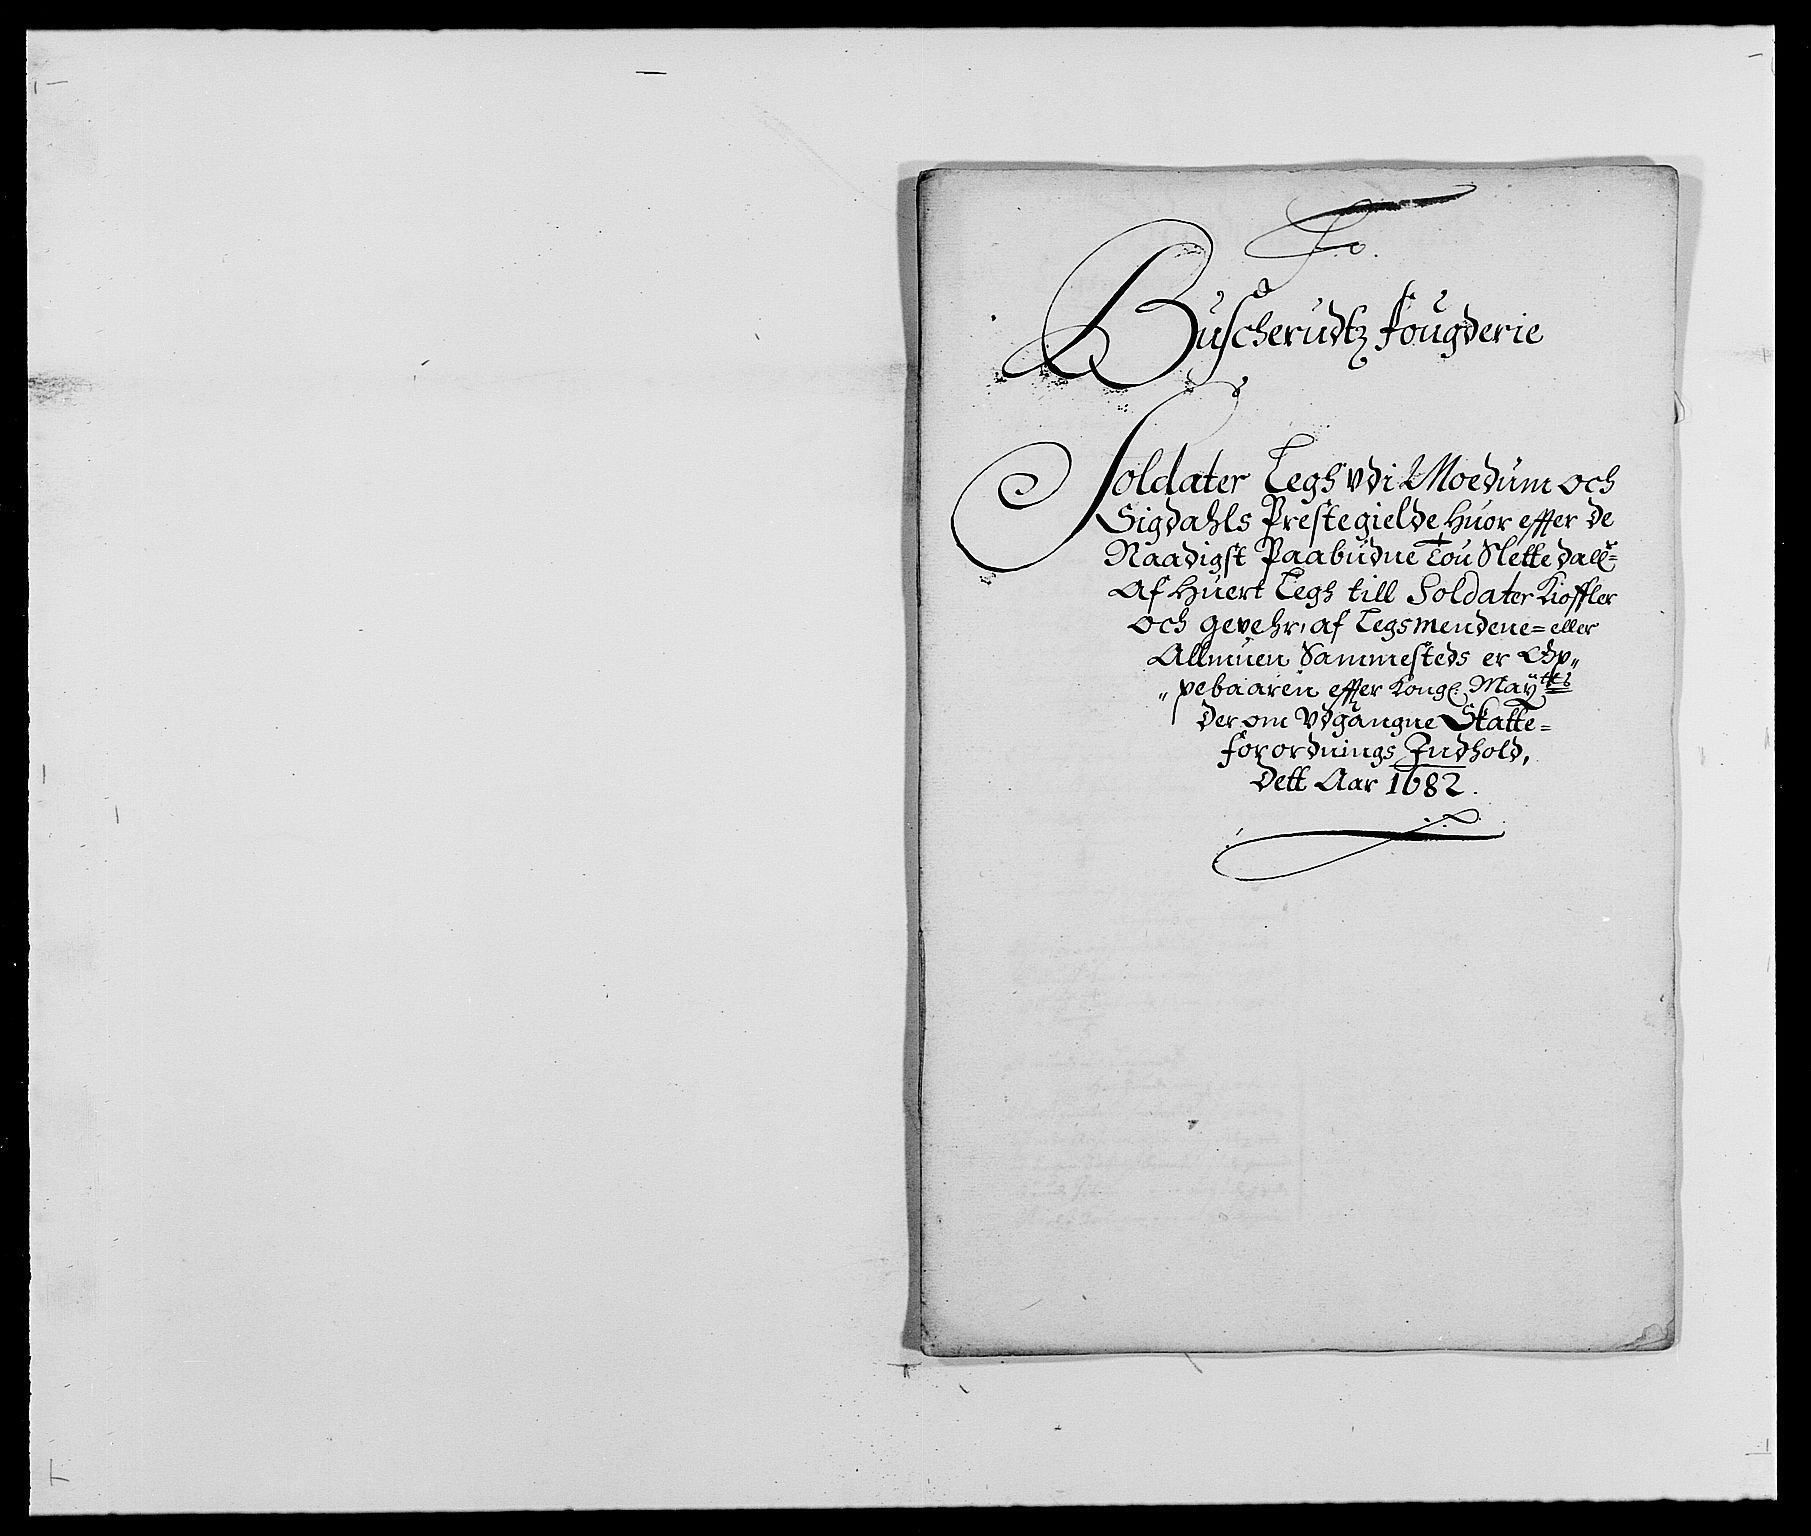 Buscherudtz fougderie
Soldater Legh vdi Moedum och
Sigdahls Prestegielde huor effter de
Naadigst Paabudne Tou Slette dall=
Af Huert Legh till Soldater Kioffler
och gevehr, af Legsmendene= eller
Allmuen Sammesteds er Op„
„pebaaren effter Kongl: Maÿtts
der om Vdgangne Skatte=
forordnings Indhold,
Dett Aar 1682.